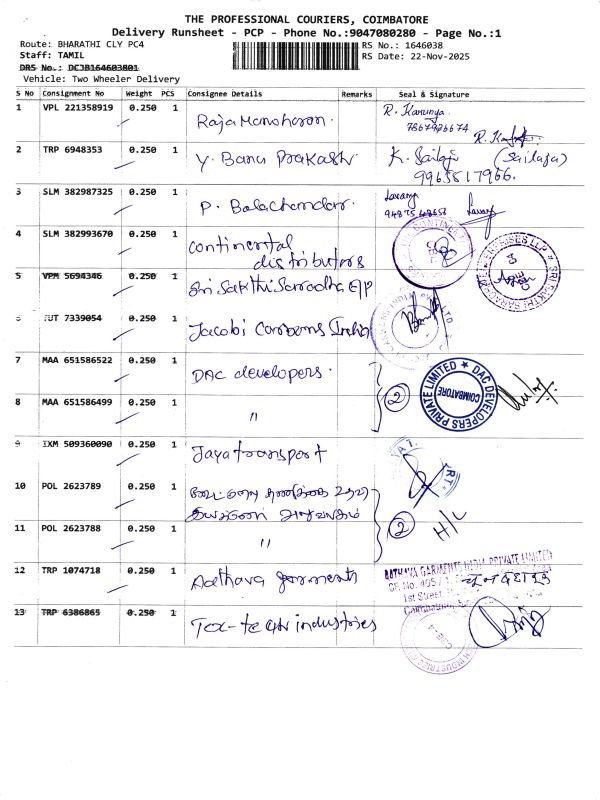 THE PROFESSIONAL COURIERS, COIMBATORE
Delivery Runsheet - PCP - Phone No.:9047080280 - Page No.:1
Route: BHARATHI CLY PC4 RS No.: 1646038
Staff: TAMIL RS Date: 22-Nov-2025
DRS No.: DCJB164603801
Vehicle: Two Wheeler Delivery
S No Consignment No Weight PCS Consignee Details Remarks Seal & Signature
1 VPL 221358919 0.250 1 Raja Manoharan. R. Kanunya
7867926674
2 TRP 6948353 0.250 1 Y. Banu Prakash. K. Sailaja (Sailaja)
9965517966.
3 SLM 382987325 0.250 1 P. Balachandar. Lavanya
4 SLM 382993670 0.250 1 Continental
distributors
5 VPM 5694346 0.250 1 Sri Sakthi Sarradha E/P
6 TUT 7339054 0.250 1 Jacobi Carbons India
7 MAA 651586522 0.250 1 DAC developers. 2 DAC DEVELOPERS PRIVATE LIMITED COIMBATORE
8 MAA 651586499 0.250 1 "
9 IXM 509360090 0.250 1 Jaya transport
10 POL 2623789 0.250 1
11 POL 2623788 0.250 1 " 2 H/L
12 TRP 1074718 0.250 1 Aathava garments AATHAVA GARMENTS INDIA PRIVATE LIMITED
1st Street
13 TRP 6386865 0.250 1 Tex-tech industries